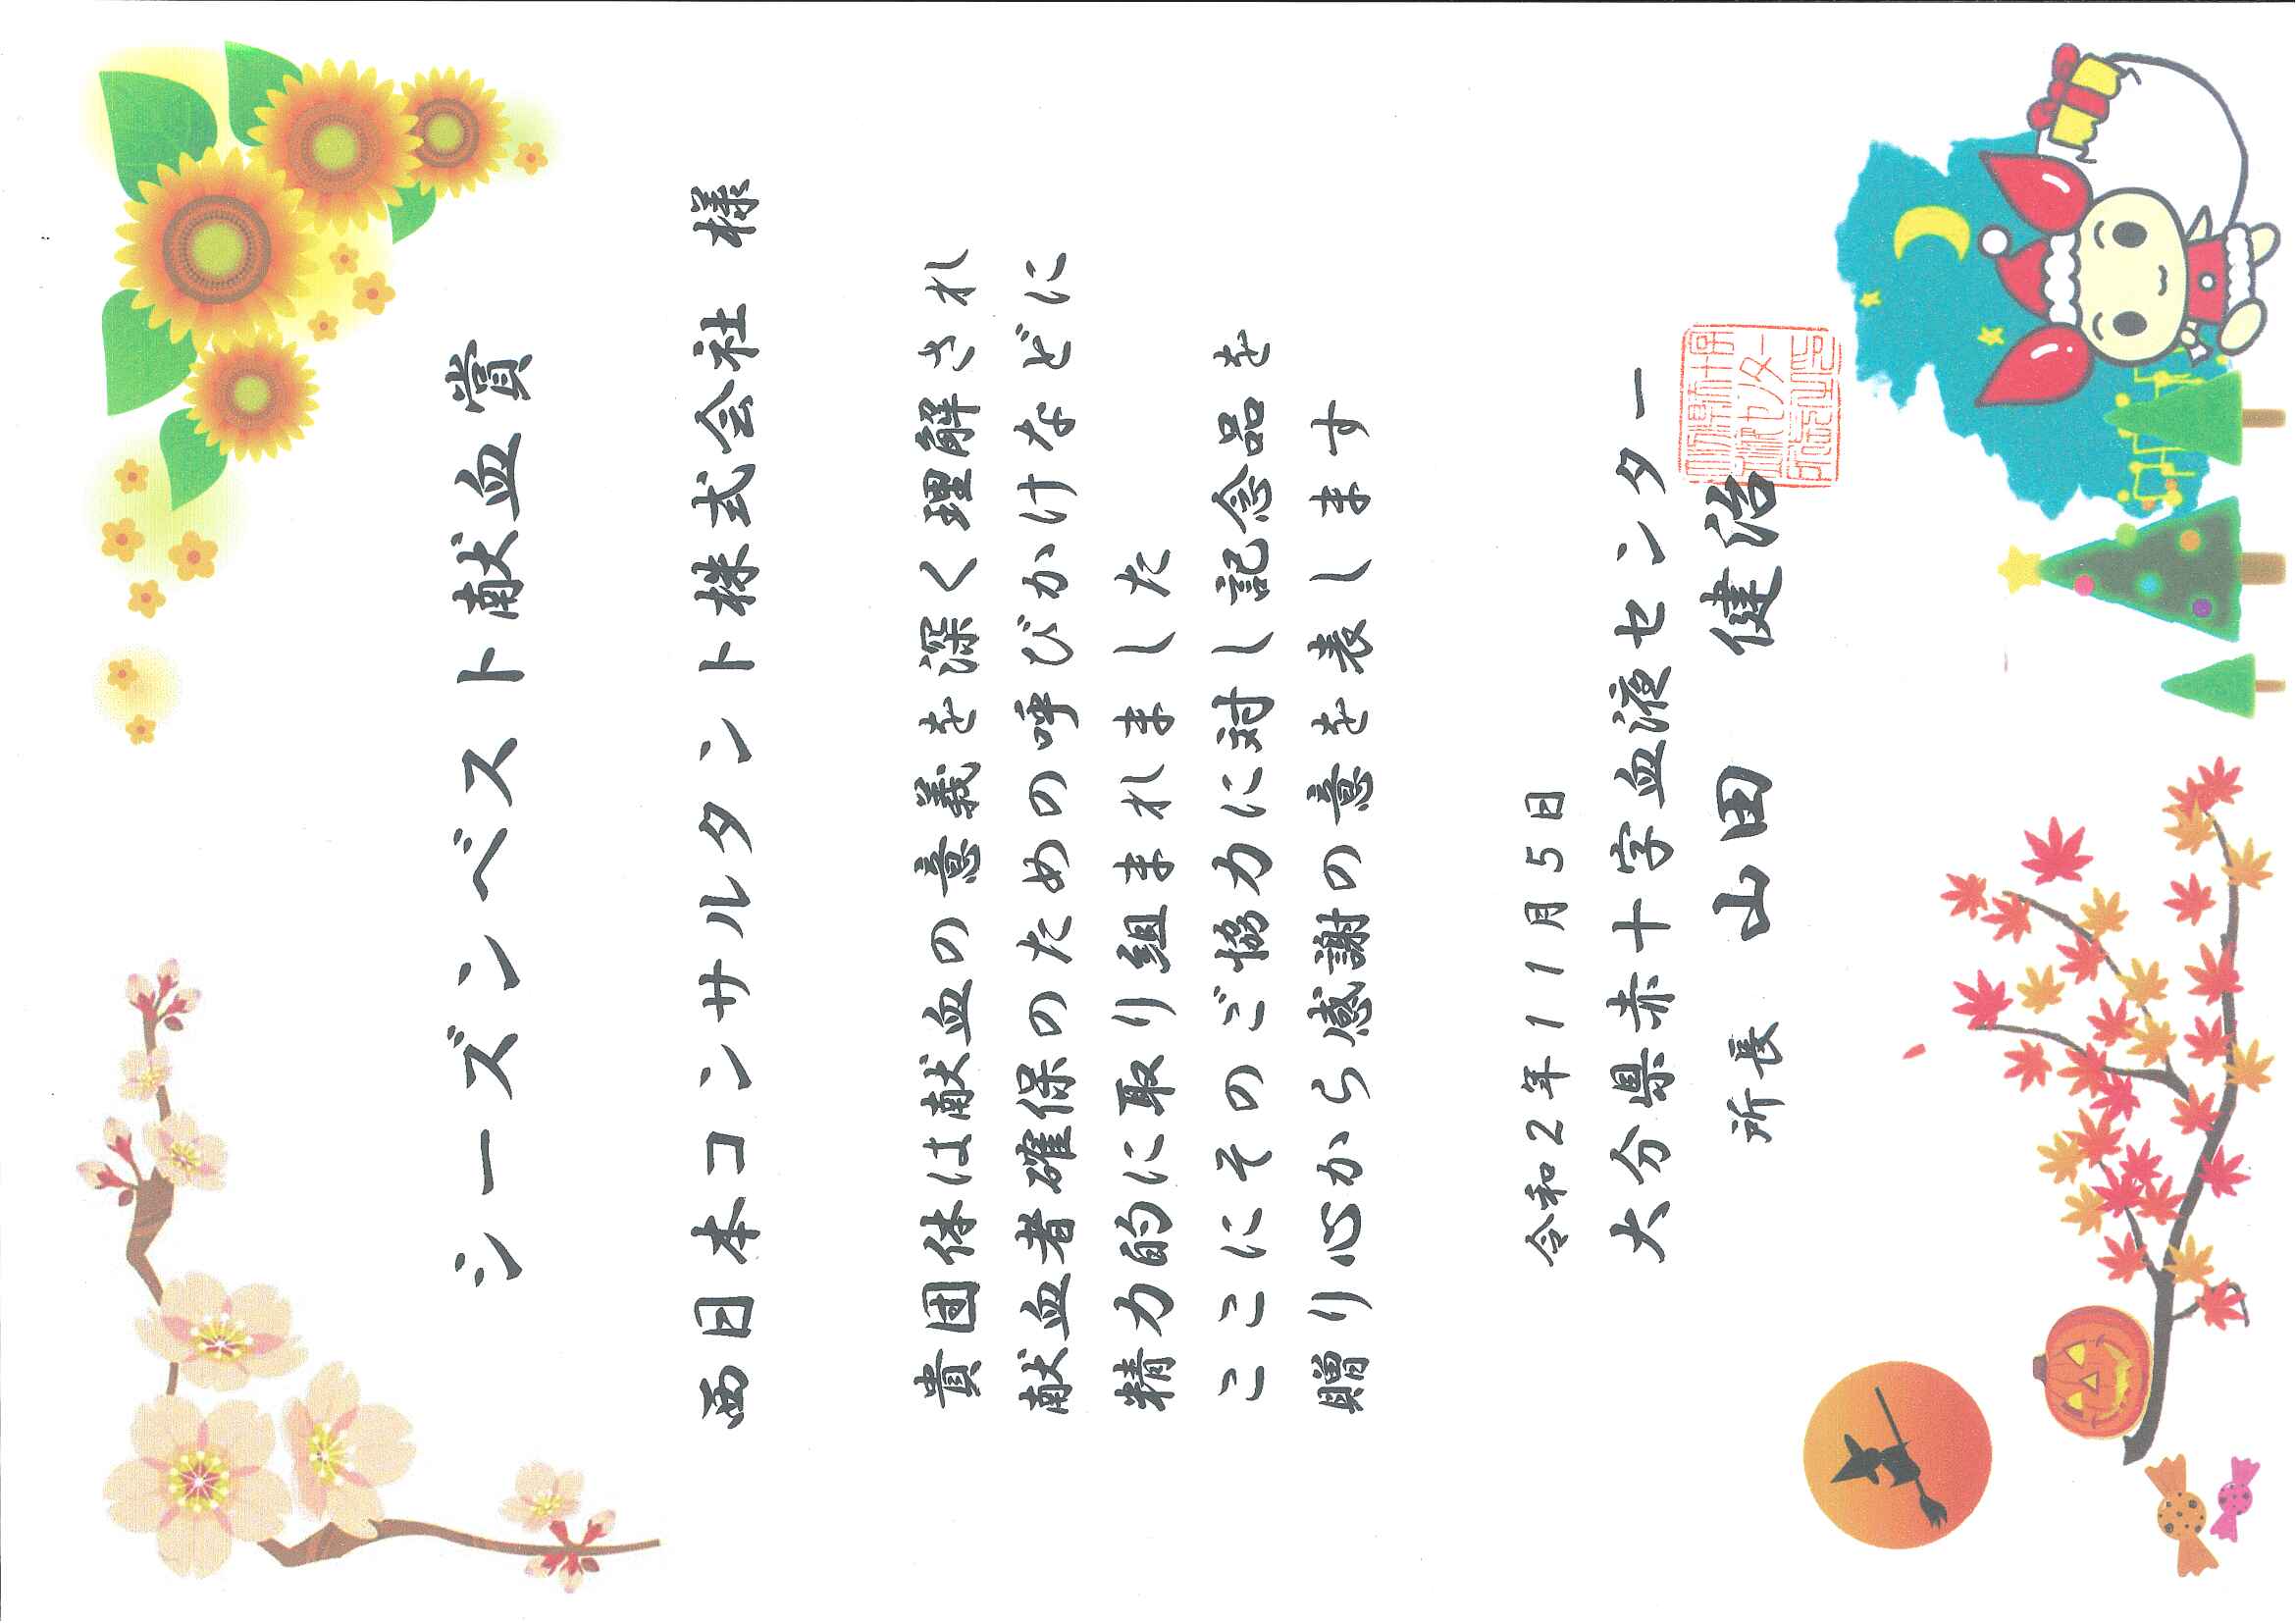 シーズンベスト献血賞
西日本コンサルタント株式会社 様
貴団体は献血の意義を深く理解され
献血者確保のための呼びかけなどに
精力的に取り組まれました
ここにそのご協力に対し記念品を
贈り心から感謝の意を表します
令和2年11月5日
大分県赤十字血液センター
所長 山田 健治